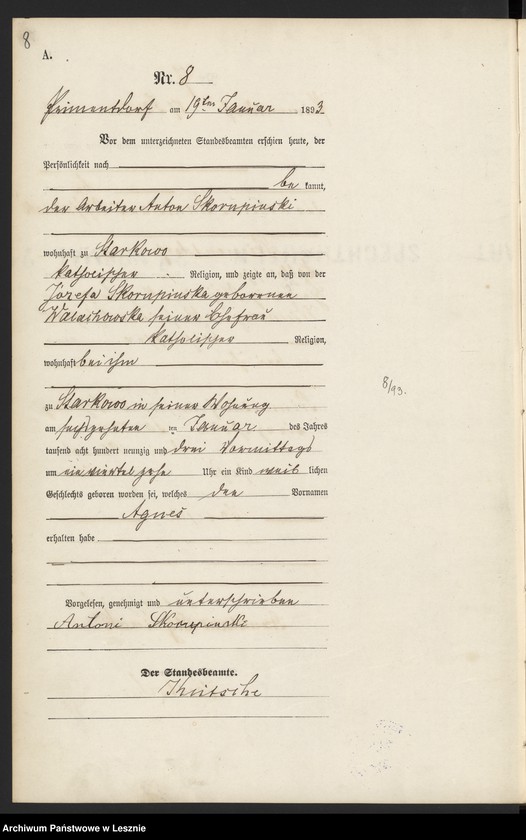 8
A.
Nr. 8
Priment­dorf am 19ten Januar 1893
Vor dem unterzeichneten Standesbeamten erschien heute, der
Persönlichkeit nach
be kannt,
der Arbeiter Anton Skorupinski
wohnhaft zu Starkowo
katholischer Religion, und zeigte an, daß von der
Józefa Skorupinska geborenen
Walachowska seiner Ehefrau
katholischer Religion,
wohnhaft bei ihm
zu Starkowo in seiner Wohnung
am sechszehnten ten Januar des Jahres
tausend acht hundert neunzig und drei Vormittags
um ein viertel zehn Uhr ein Kind weib lichen
Geschlechts geboren worden sei, welches den Vornamen
Agnes
erhalten habe
8/93.
Vorgelesen, genehmigt und unterschrieben
Antoni Skorupinski
Der Standesbeamte.
Kutsche
Archiwum Państwowe w Lesznie